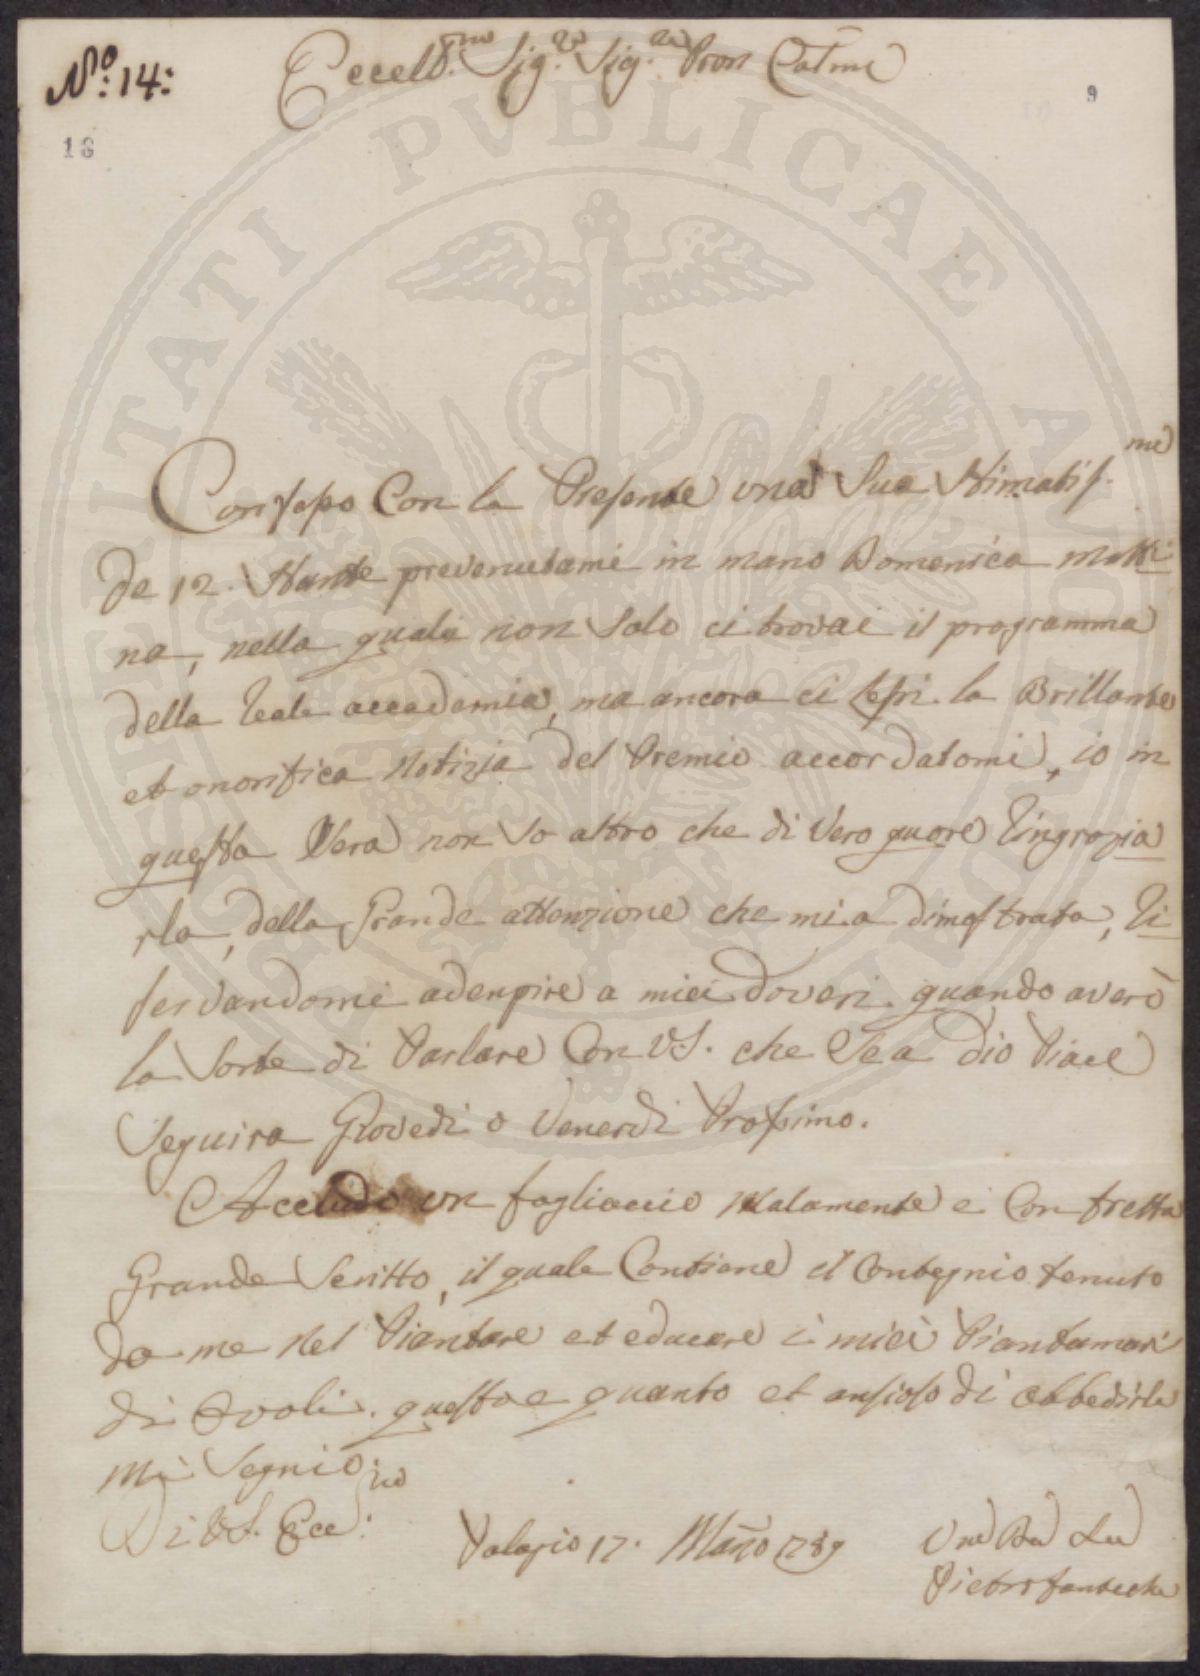 N.º 14:
Eccell.mo Sig.re Sig.re Pron Colmo
9
18
PROSPERITATI PVBLICAE AVGENDAE
Confesso Con la Presente una Sua Stimatiss.ma
de 12. Stante prevenutami in mano Domenica matti
na, nella quale non solo ci trovai il programma
della Reale accademia, ma ancora ci lessi la Brillante
et onorifica Notizia del Premio accordatomi, io in
questa Sera non so altro che di Vero quore Ringrazia
rla, della Grande attenzione che mi a dimostrata, Ri
servandomi adenpire a miei doveri quando averò
la Sorte di Parlare Con VS. che Se a Dio Piace
Seguira Giovedi o Venerdi Prossimo.
Accludo un fogliaccio Malamente e Con fretta
Grande Scritto, il quale Contiene il Contegnio tenuto
da me Nel Piantare et educare i miei Piantumari
di Ovoli. questo e quanto et ansioso di obbedirla
Mi Segnio
Di VS. Ecc:ma
Palagio 17. Marzo 1789
Pietro Fantechi